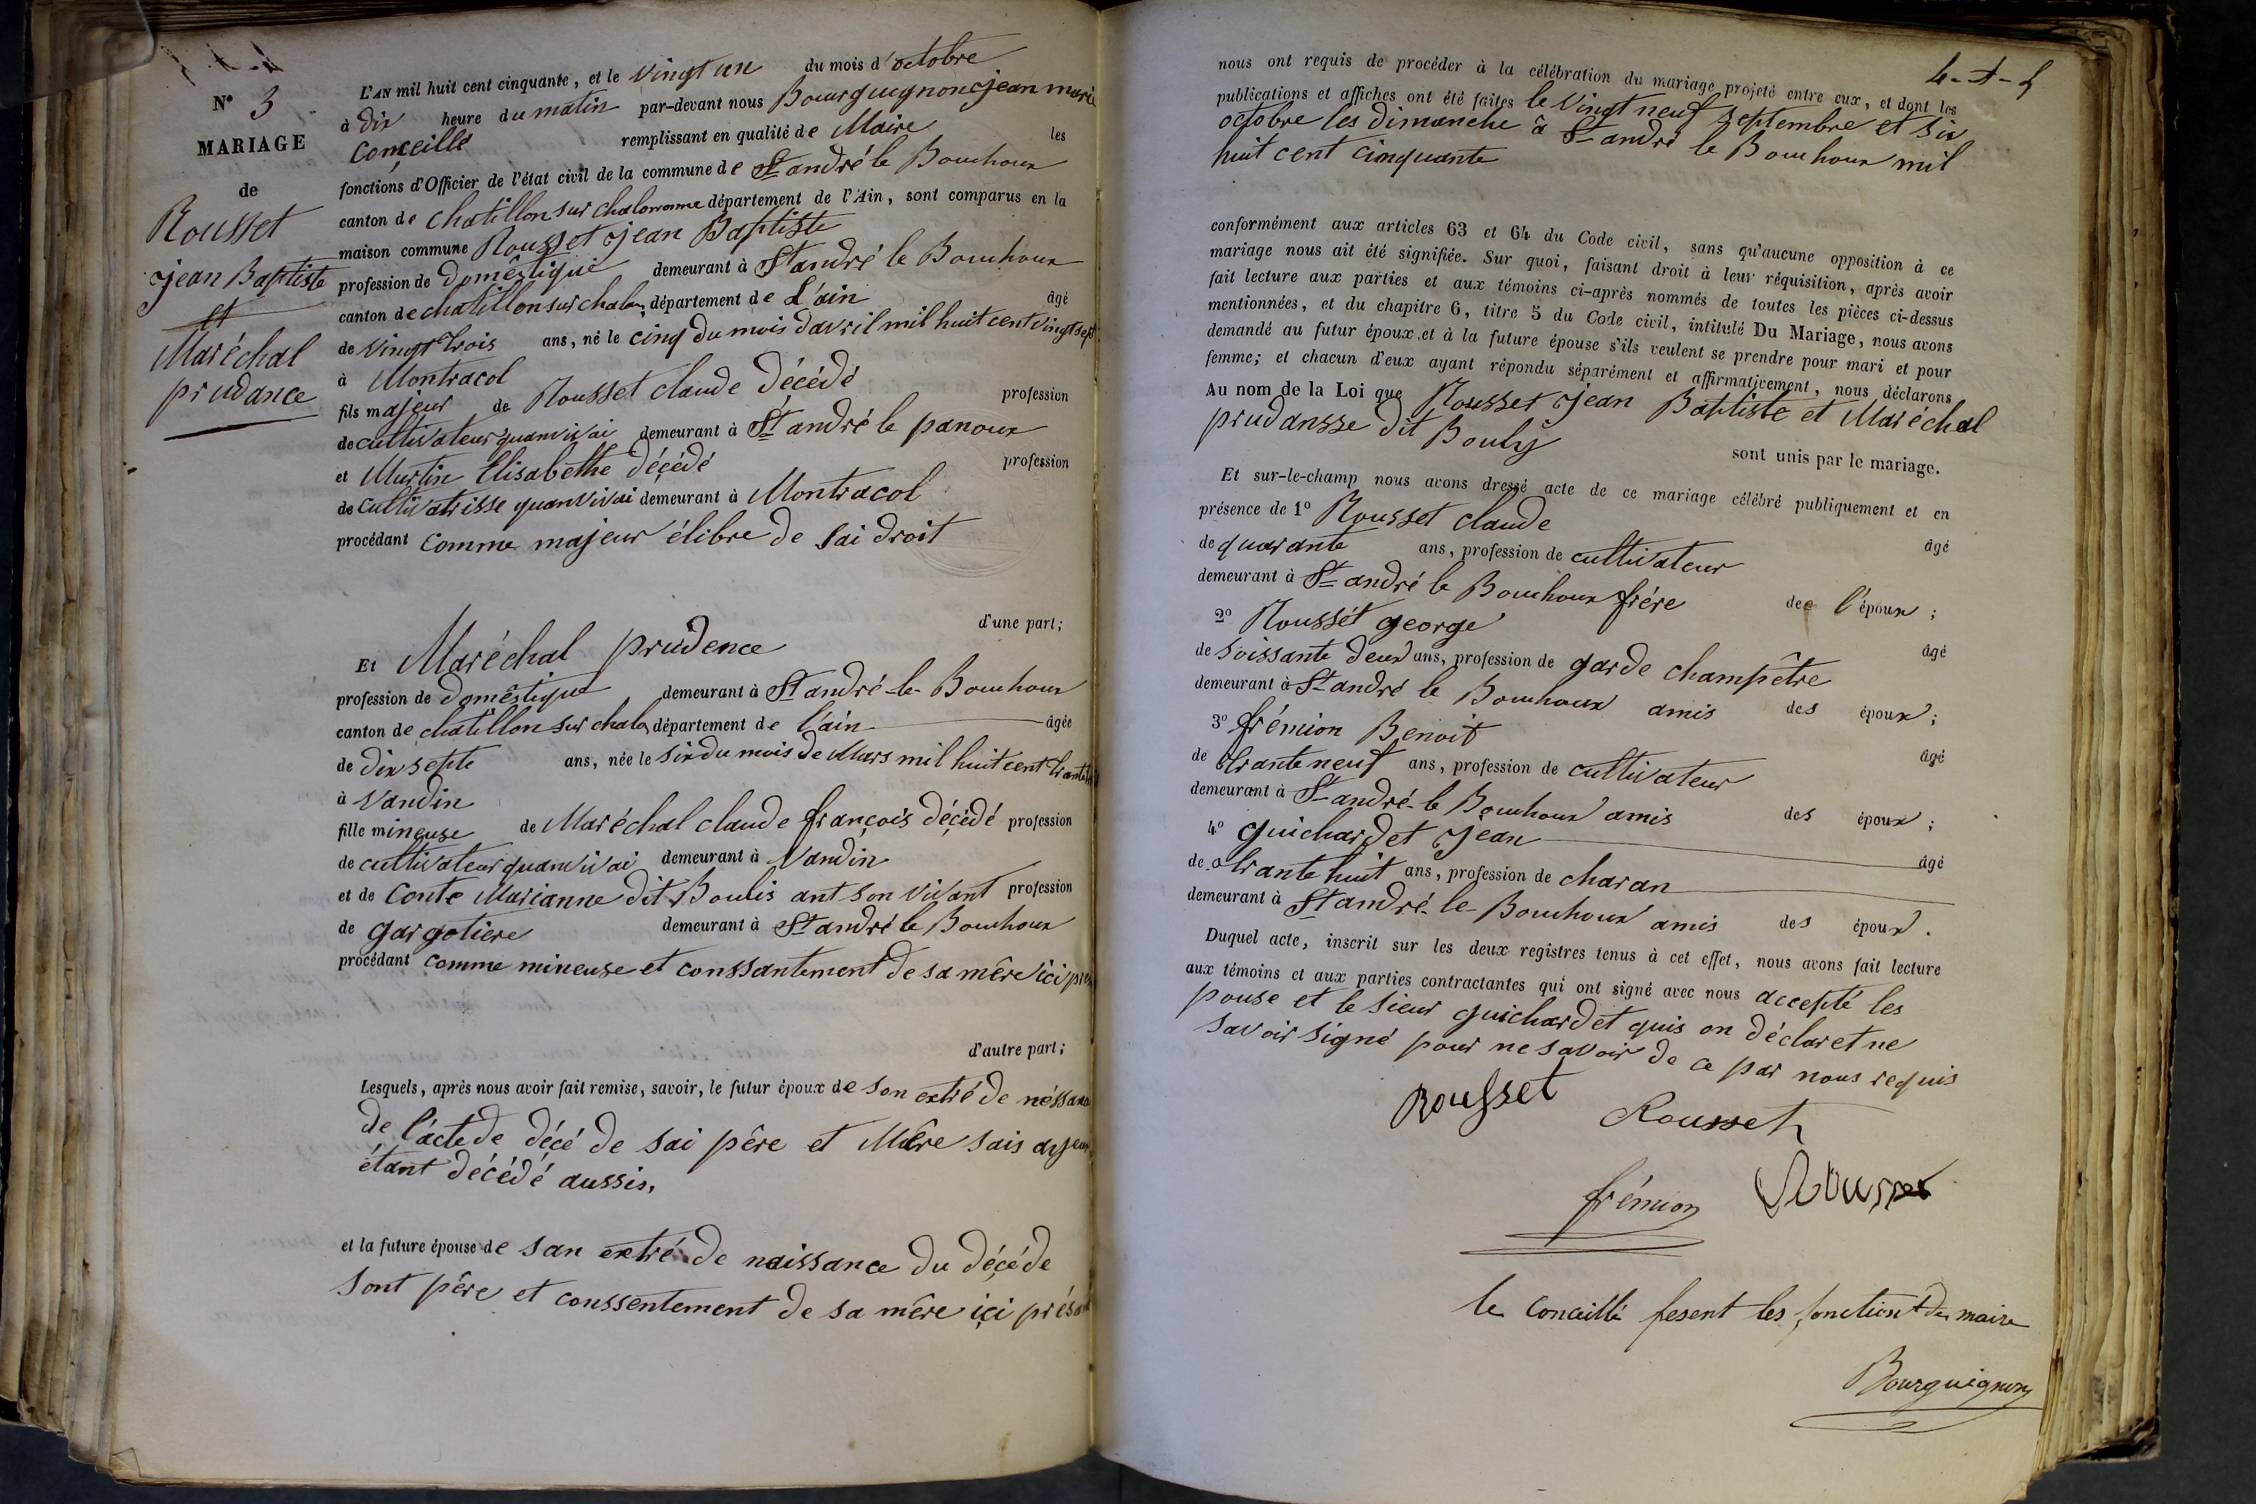 N° 3
MARIAGE
de
Rousset
jean Baptiste
et
Maréchal
prudance
L'AN mil huit cent cinquante, et le vingt un du mois d'octobre
à dix heure du matin par-devant nous Bourguignon jean marie
conçeillé remplissant en qualité de Maire les
fonctions d'Officier de l'état civil de la commune de St andré le Bouchoux
canton de chatillon sur chalaronne département de l'Ain, sont comparus en la
maison commune Rousset jean Baptiste
profession de domestique demeurant à St andré le Bouchoux
canton de chatillon sur chala département de L'ain âgé
de vingt trois ans, né le cinq du mois davril mil huit cent vingt sept
à Montracol
fils majeur de Rousset claude décédé profession
de cultivateur quanvivai demeurant à St andré le panoux
et Martin Elisabethe déçédé profession
de cultivatrisse quanvivai demeurant à Montracol
procédant comme majeur élibre de sai droit
d'une part;
Et Maréchal prudence
profession de domestique demeurant à St andré le Bouchoux
canton de chatillon sur chala département de l'ain âgée
de dix septe ans, née le six du mois de Mars mil huit cent trante
à Vandin
fille mineuse de Maréchal claude françois déçédé profession
de cultivateur quanvivai demeurant à Vandin
et de Conte Marianne dit Boulis ant son vivant profession
de gargotiere demeurant à St andré le Bouchoux
procédant comme mineuse et conssantement de sa mêre ici
d'autre part;
Lesquels, après nous avoir fait remise, savoir, le futur époux de son extré de néssance
de l'acte de décé de sai pêre et Mêre sais
étant décédé aussis,
et la future épouse de san extré de naissance du déçéde
sont pêre et conssentement de sa mêre içi
4-1-5
nous ont requis de procéder à la célébration du mariage projeté entre eux, et dont les
publications et affiches ont été faites le vingt neuf septembre et six
octobre les dimanche à St andré le Bouchoux mil
huit cent cinquante
conformément aux articles 63 et 64 du Code civil, sans qu'aucune opposition à ce
mariage nous ait été signifiée. Sur quoi, faisant droit à leur réquisition, après avoir
fait lecture aux parties et aux témoins ci-après nommés de toutes les pièces ci-dessus
mentionnées, et du chapitre 6, titre 5 du Code civil, intitulé Du Mariage, nous avons
demandé au futur époux et à la future épouse s'ils veulent se prendre pour mari et pour
femme; et chacun d'eux ayant répondu séparément et affirmativement, nous déclarons
Au nom de la Loi que Rousset jean Baptiste et Maréchal
prudansse dit Bouly
sont unis par le mariage.
Et sur-le-champ nous avons dressé acte de ce mariage célébré publiquement et en
présence de 1° Rousset claude
de quarante ans, profession de cultivateur âgé
demeurant à St andré le Bouchoux frére de l'époux;
2° Roussét george
de soissante deux ans, profession de garde champêtre âgé
demeurant à St andré le Bouchoux amis des époux;
3° frémion Benoit
de trante neuf ans, profession de cultivateur âgé
demeurant à St andré le Bouchoux amis des époux;
4° guichardet jean
de trante huit ans, profession de charan âgé
demeurant à St andré le Bouchoux amis des époux.
Duquel acte, inscrit sur les deux registres tenus à cet effet, nous avons fait lecture
aux témoins et aux parties contractantes qui ont signé avec nous accepté les
pouse et le sieur guichardet quis on déclaret ne
savoir signé pour ne savoir de ce par nous requis
Rousset
Rousset
frémion
Rousset
le conceillé fesent les fonction de maire
Bourguignon